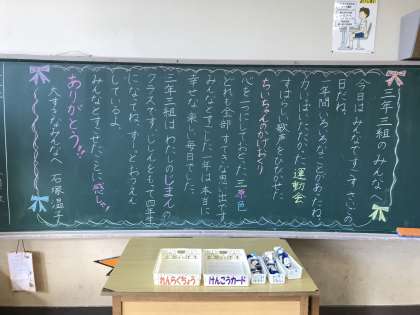 三年三組のみんなへ
今日は、みんなですごすさいごの
日だね。
一年間いろいろなことがあったね。
力いっぱいがんばった運動会
すばらしい歌声をひびかせた
ちいちゃんのかげおくり
心を一つにしておどった三原色
どれも全部すてきな思い出です。
みんなとすごした一年は本当に
幸せな楽しい毎日でした。
三年三組はわたしのじまんの
クラスです。じしんをもって四年生
になってね。ずーっとおうえん
しているよ。
みんなとすごせたことに感しゃ!!
ありがとう!!
大すきなみんなへ 石塚温子
れんらくちょう
けんこうカード